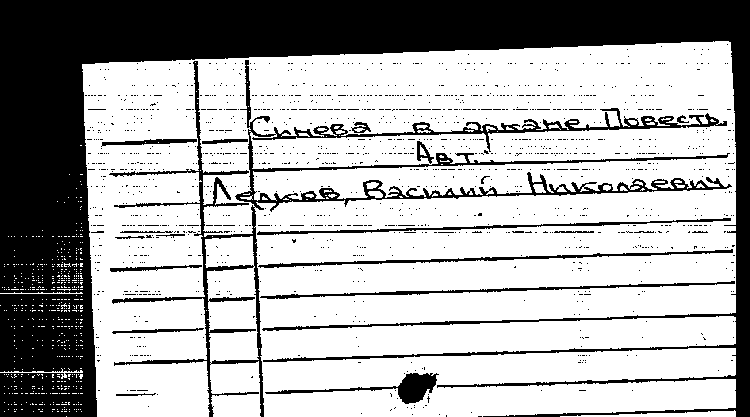 Синева в аркане. Повесть.
Авт.:
Ледков, Василий Николаевич